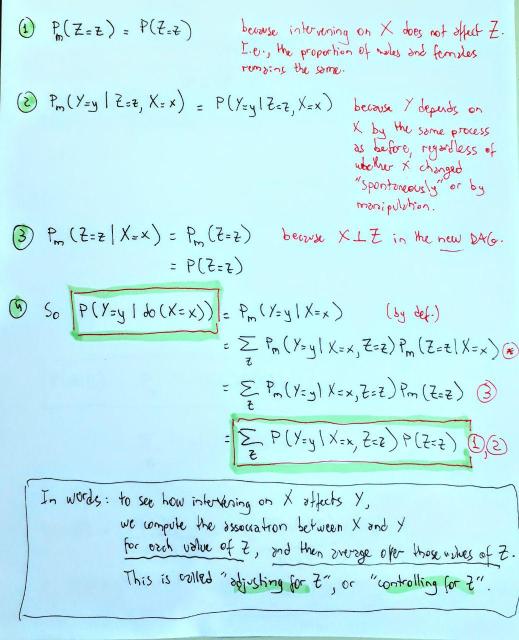 ① Pₘ(Z=z) = P(Z=z) because intervening on X does not affect Z.
I.e., the proportion of males and females
remains the same.
② Pₘ(Y=y | Z=z, X=x) = P(Y=y | Z=z, X=x) because Y depends on
X by the same process
as before, regardless of
whether X changed
"spontaneously" or by
manipulation.
③ Pₘ(Z=z | X=x) = Pₘ(Z=z) because X⊥Z in the new DAG.
= P(Z=z)
④ So P(Y=y | do(X=x)) = Pₘ(Y=y | X=x) (by def.)
= Σ_z Pₘ(Y=y | X=x, Z=z) Pₘ(Z=z | X=x) ⊛
= Σ_z Pₘ(Y=y | X=x, Z=z) Pₘ(Z=z) ③
= Σ_z P(Y=y | X=x, Z=z) P(Z=z) ①,②
In words: to see how intervening on X affects Y,
we compute the association between X and Y
for each value of Z, and then average over those values of Z.
This is called "adjusting for Z", or "controlling for Z".